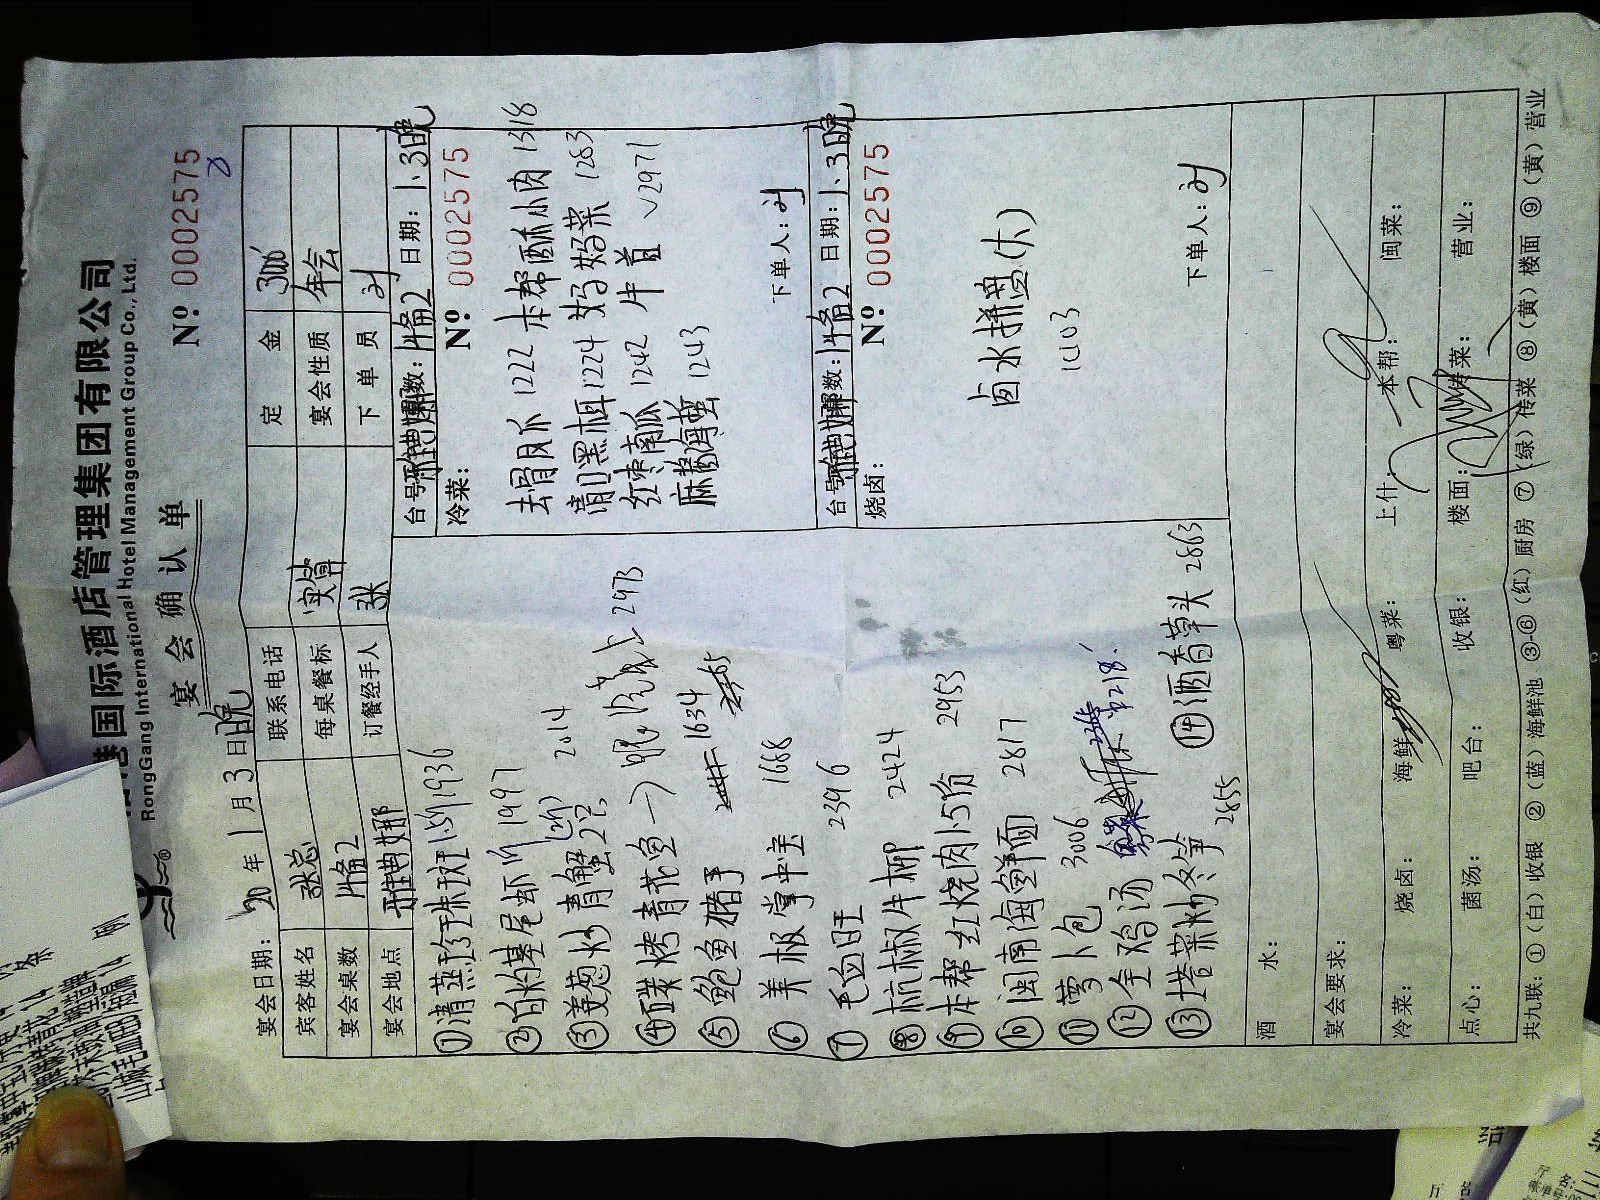 港国际酒店管理集团有限公司
RongGang International Hotel Management Group Co., Ltd.
宴会确认单
№ 0002575
宴会日期: 20年1月3日晚
宾客姓名 张总 联系电话 定金 300
宴会桌数 1备2 每桌餐标 实算 宴会性质 年会
宴会地点 雅典娜 订餐经手人 张 下单员 刘
①清蒸珍珠斑 1.5 1936
②白灼基尾虾 1997
③姜葱炒青蟹2只 2014
④碳烤青花鱼 2973
⑤鲍鱼猪手 1634
⑥美极掌中宝 1668
⑦毛血旺 2396
⑧杭椒牛柳 2424
⑨本帮红烧肉1.5份 2953
⑩闽南海鲜面 2817
⑪萝卜包 3006
⑫全鸡汤 218
⑬塔菜炒冬笋 2855
⑭酒香草头 2863
台号 雅典娜 桌数: 1备2 日期: 1.3晚
冷菜: № 0002575
去骨凤爪 1222 本帮酥小肉 1318
清口黑木耳 1224 妈妈菜 1283
红枣南瓜 1242 牛 2971
麻酱海蜇 1243
下单人: 刘
台号 雅典娜 桌数: 1备2 日期: 1.3晚
烧卤: № 0002575
卤水拼盘(大)
1403
下单人: 刘
酒水:
宴会要求:
冷菜: 烧卤: 海鲜: 粤菜: 上什: 本帮: 闽菜:
点心: 菌汤: 吧台: 收银: 楼面: 传菜: 营业:
共九联: ①(白)收银 ②(蓝)海鲜池 ③-⑥(红)厨房 ⑦(绿)传菜 ⑧(黄)楼面 ⑨(黄)营业